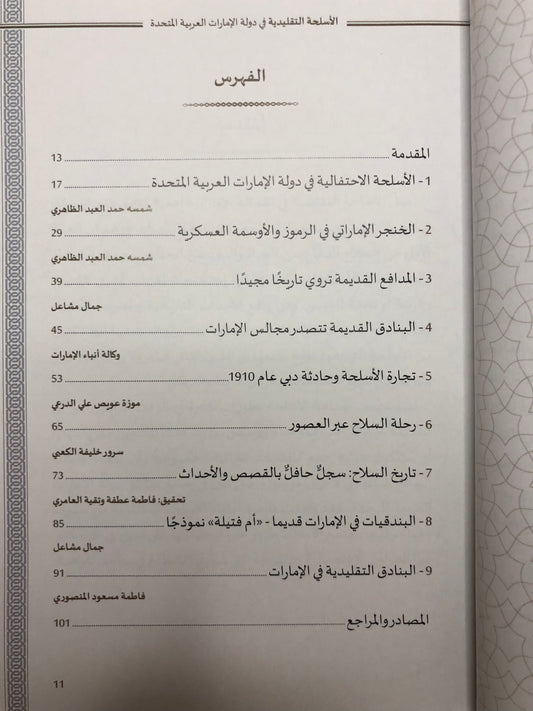 الأسلحة التقليدية في دولة الإمارات العربية المتحدة
الفهرس
المقدمة ........ 13
1- الأسلحة الاحتفالية في دولة الإمارات العربية المتحدة ........ 17
شمسه حمد العبد الظاهري
2- الخنجر الإماراتي في الرموز والأوسمة العسكرية ........ 29
شمسه حمد العبد الظاهري
3- المدافع القديمة تروي تاريخًا مجيدًا ........ 39
جمال مشاعل
4- البنادق القديمة تتصدر مجالس الإمارات ........ 45
وكالة أنباء الإمارات
5- تجارة الأسلحة وحادثة دبي عام 1910 ........ 53
موزة عويص علي الدرعي
6- رحلة السلاح عبر العصور ........ 65
سرور خليفة الكعبي
7- تاريخ السلاح: سجلٌّ حافلٌ بالقصص والأحداث ........ 73
تحقيق: فاطمة عطفة وتقية العامري
8- البندقيات في الإمارات قديما - «أم فتيلة» نموذجًا ........ 85
جمال مشاعل
9- البنادق التقليدية في الإمارات ........ 91
فاطمة مسعود المنصوري
المصادر والمراجع ........ 101
11